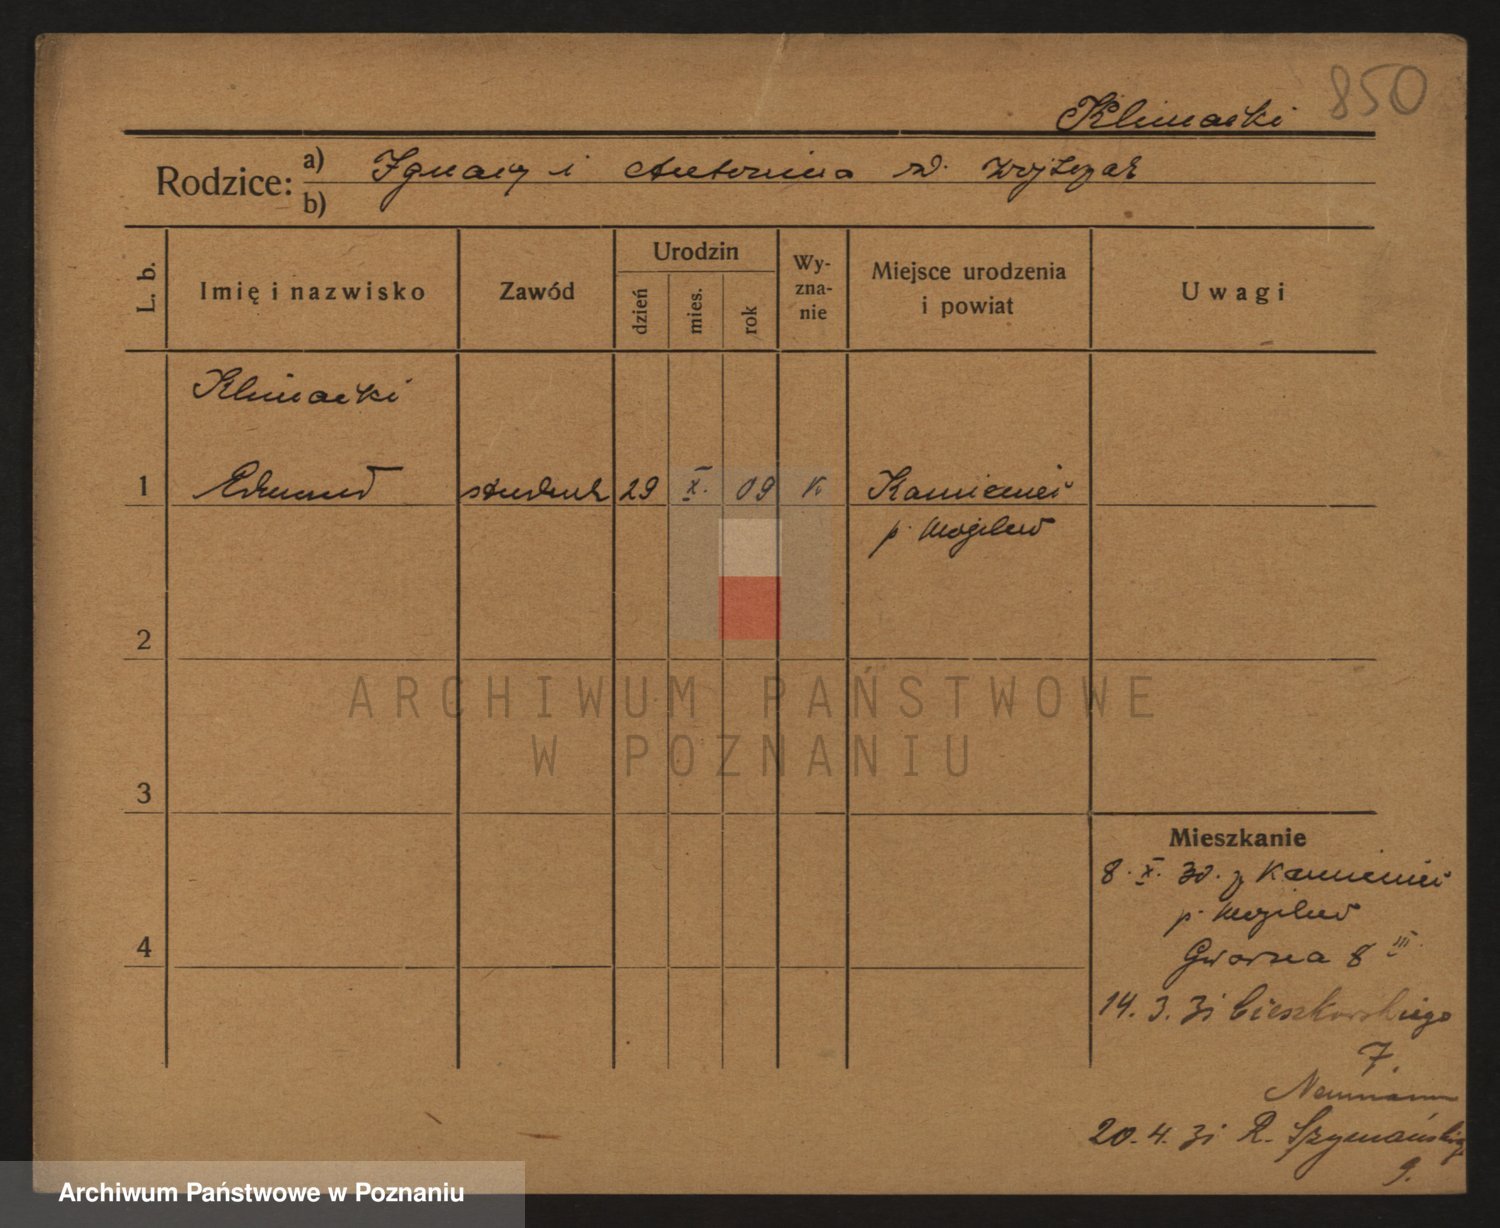 850
Klimacki
Rodzice: a) Ignacy i Antonina zd. Wojtczak
b)
L. b.
Imię i nazwisko
Zawód
Urodzin
dzień
mies.
rok
Wy-
zna-
nie
Miejsce urodzenia
i powiat
Uwagi
Klimacki
1 Edmund student 29 X. 09 K Kamieniec
p. Mogilno
2
ARCHIWUM PAŃSTWOWE
W POZNANIU
3
Mieszkanie
8. X. 30. z Kamieniec
p. Mogilno
4
Gwarna 8 III.
14. 3. 31 Cieszkowskiego
7.
Neumann
20. 4. 31 R. Szymańskiego
9.
Archiwum Państwowe w Poznaniu